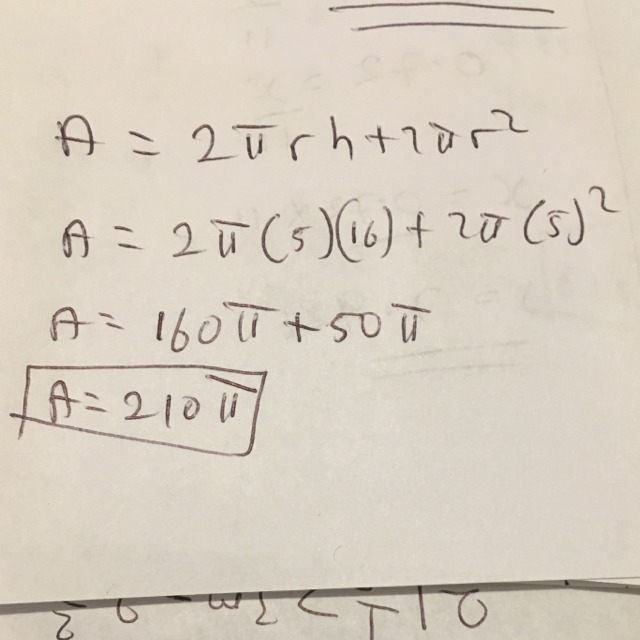 A = 2πrh+2πr²
A = 2π(5)(16)+2π(5)²
A = 160π+50π
A = 210π